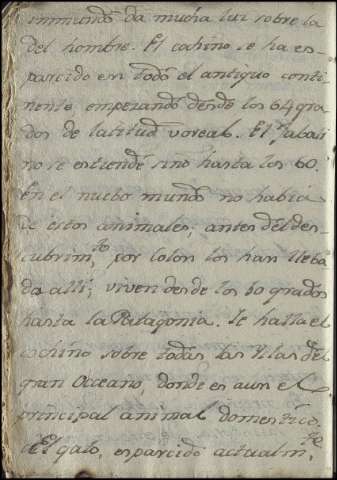 inmundos da mucha luz sobre la
del hombre. El cochino se ha es-
parcido em todo el antiguo conti-
nente, empezando desde los 64 gra-
dos de latitud voreal. El jabali
no se estiende sino hasta los 60.
En el nuebo mundo no habia
de estos animales; antes del des-
cubrim.to por Colon los han lleba
do alli; viven desde los 50 grados
hasta la Patagonia. Se halla el
cochino sobre todas las Yslas del
gran Occeano, donde es aun el
principal animal domestico.
El gato, esparcido actualm.te